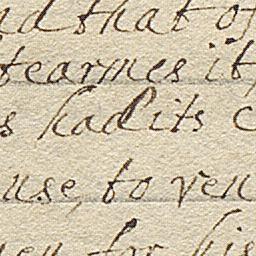 nd that of
tearmes it,
s had its c
use, to ren
en for his